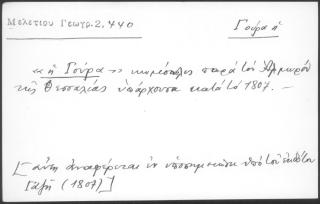 Μελετίου Γεωγρ. 2, 440
Γούρα ἡ
«ἡ Γούρα» κωμόπολις παρὰ τὸν Ἁλμυρὸν
τῆς Θεσσαλίας ὑπάρχουσα κατὰ τὸ 1807. —
[αὕτη ἀναφέρεται ἐν ὑποσημειώσει ὑπὸ τοῦ ἐκδότου
Γαζῆ (1807)]